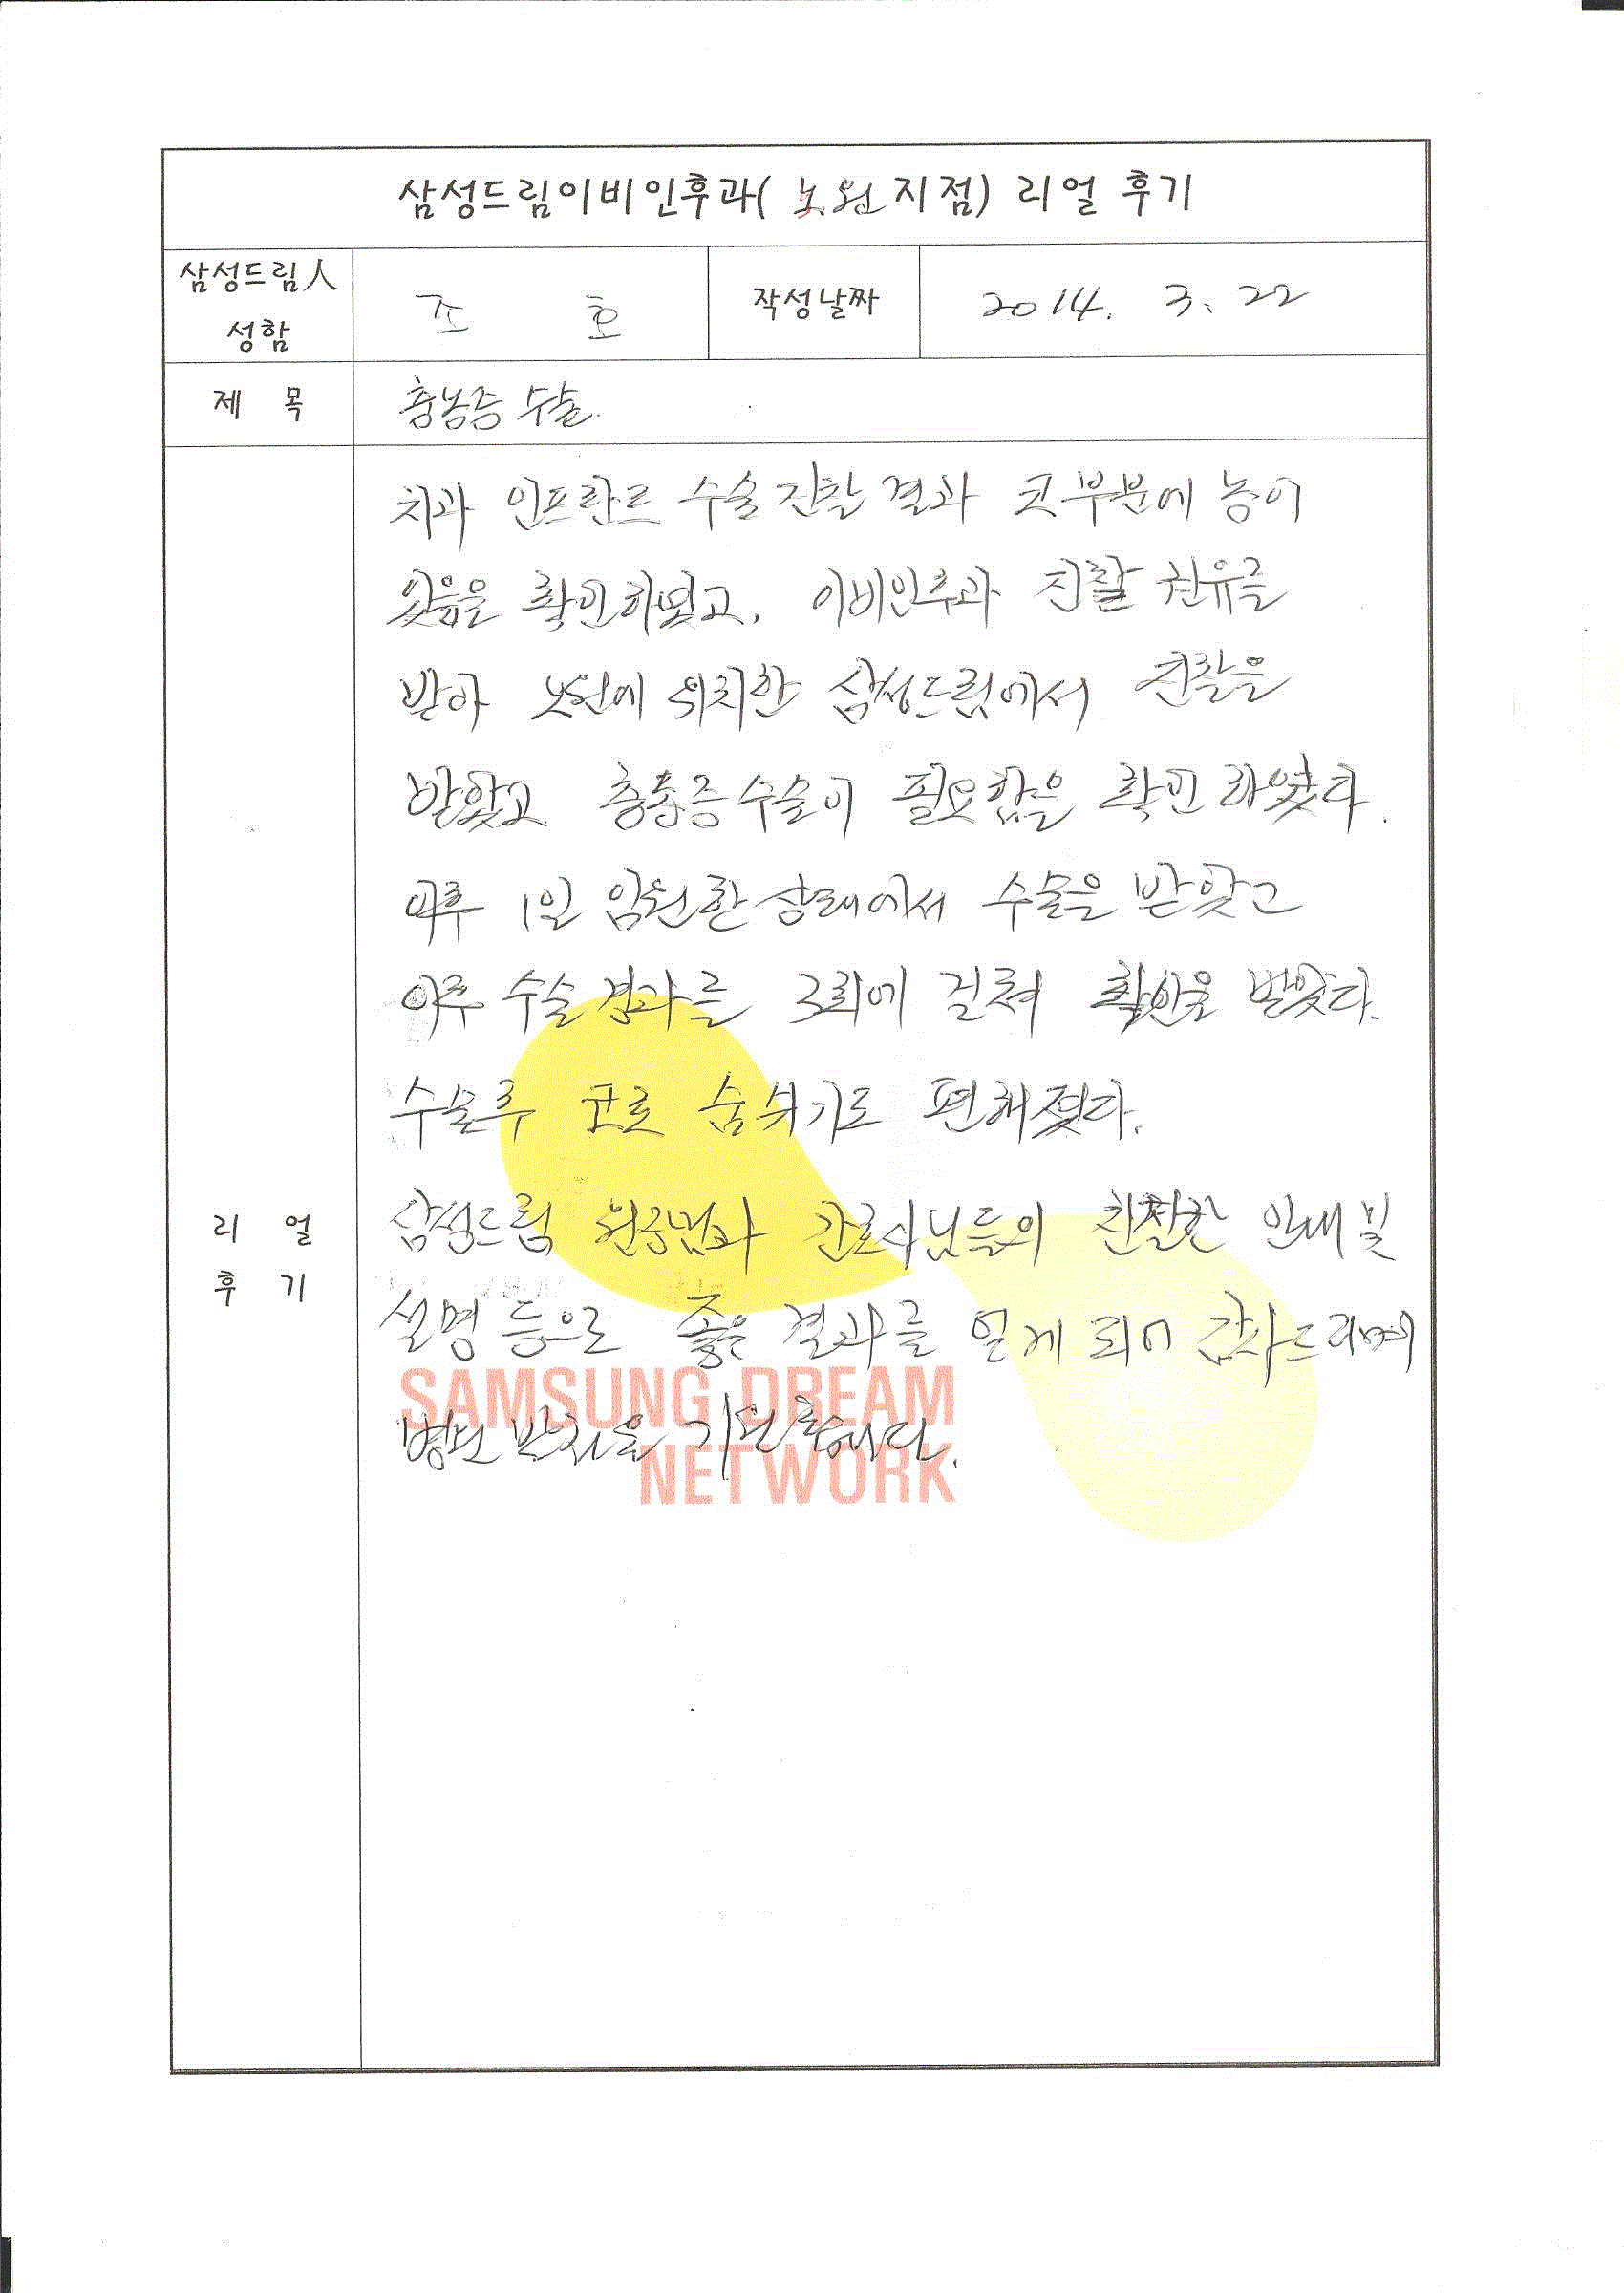 삼성드림이비인후과( 노원 지점) 리얼 후기
삼성드림人
성함
조 호
작성날짜
2014. 3. 22
제 목
충농증 수술.
치과 인프란트 수술 진찰 결과 코 부분에 농이
있음을 확인하였고, 이비인후과 진찰 권유를
받아 노원에 위치한 삼성드림에서 진찰을
받았고 충농증 수술이 필요함을 확인 하였다.
이후 1일 입원한 상태에서 수술을 받았고
이후 수술 결과를 3회에 걸쳐 확인을 받았다.
수술후 코로 숨쉬기도 편해졌다.
리 얼
후 기
삼성드림 원장님과 간호사님들의 친절한 안내 및
설명 등으로 좋은 결과를 얻게 되어 감사드리며
병원 발전을 기원합니다.
SAMSUNG DREAM
NETWORK